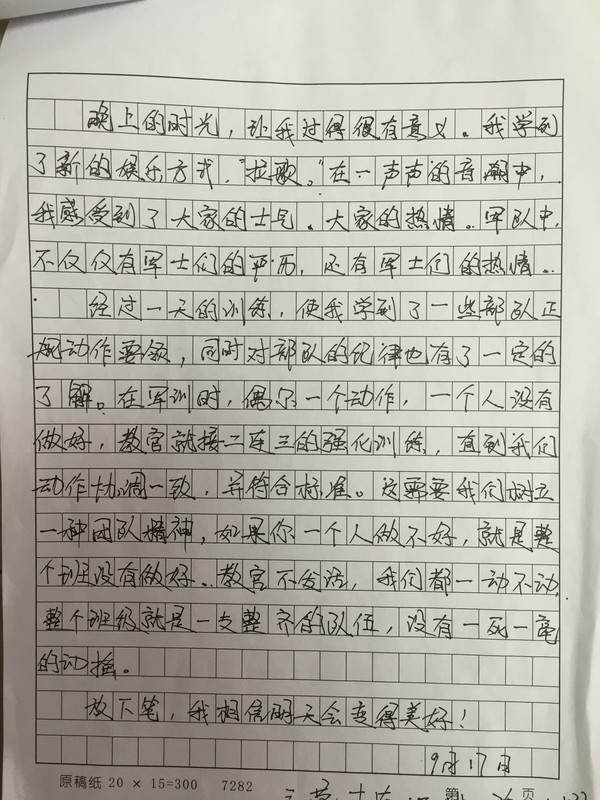 晚上的时光，让我过得很有意义。我学到
了新的娱乐方式，“拉歌。”在一声声的音潮中，
我感受到了大家的士气。大家的热情。军队中，
不仅仅有军士们的严厉，还有军士们的热情。
经过一天的训练，使我学到了一些部队正
规动作要领，同时对部队的纪律也有了一定的
了解。在军训时，偶尔一个动作，一个人没有
做好，教官就接二连三的强化训练，直到我们
动作协调一致，并符合标准。这需要我们树立
一种团队精神，如果你一个人做不好，就是整
个班没有做好。教官不发话，我们都一动不动，
整个班级就是一支整齐的队伍，没有一死一毫
的动摇。
放下笔，我相信明天会变得美好！
9月17日
原稿纸 20 × 15=300 7282
第 页